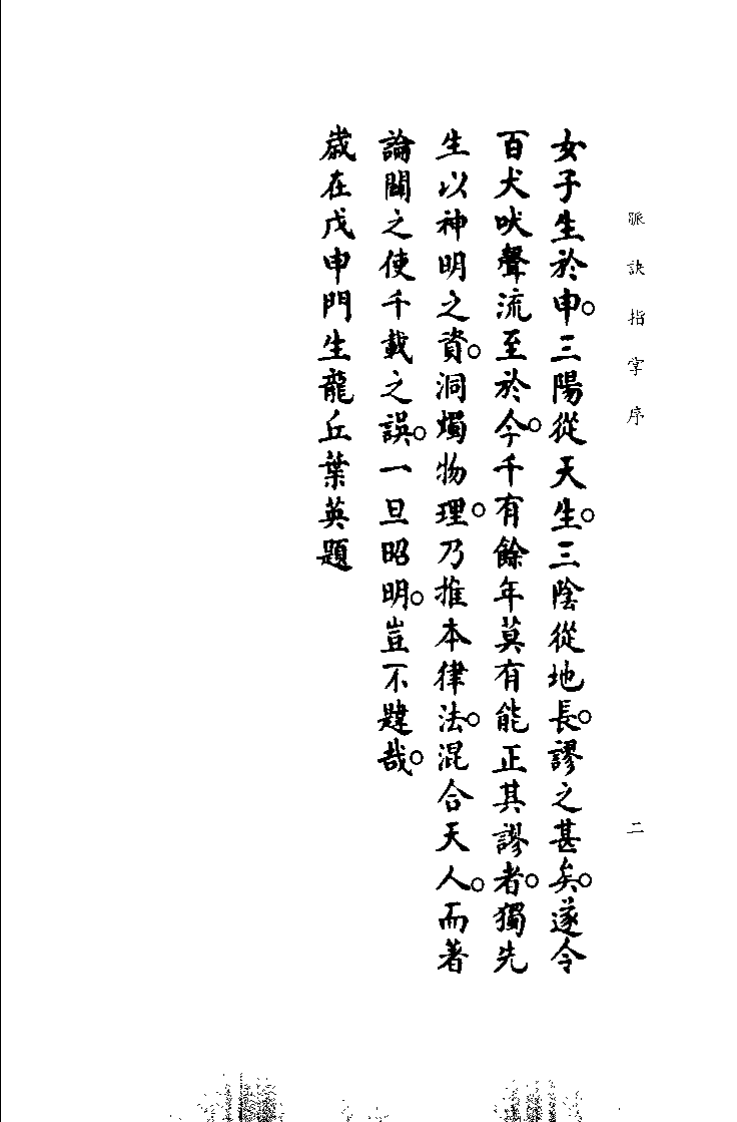 脈訣指掌序
二
女子生於申。三陽從天生。三陰從地長。謬之甚矣。遂令
百犬吠聲流至於今。千有餘年莫有能正其謬者。獨先
生以神明之資。洞燭物理。乃推本律法。混合天人。而著
論闢之使千載之誤。一旦昭明。豈不韙哉。
歲在戊申門生龍丘葉英題